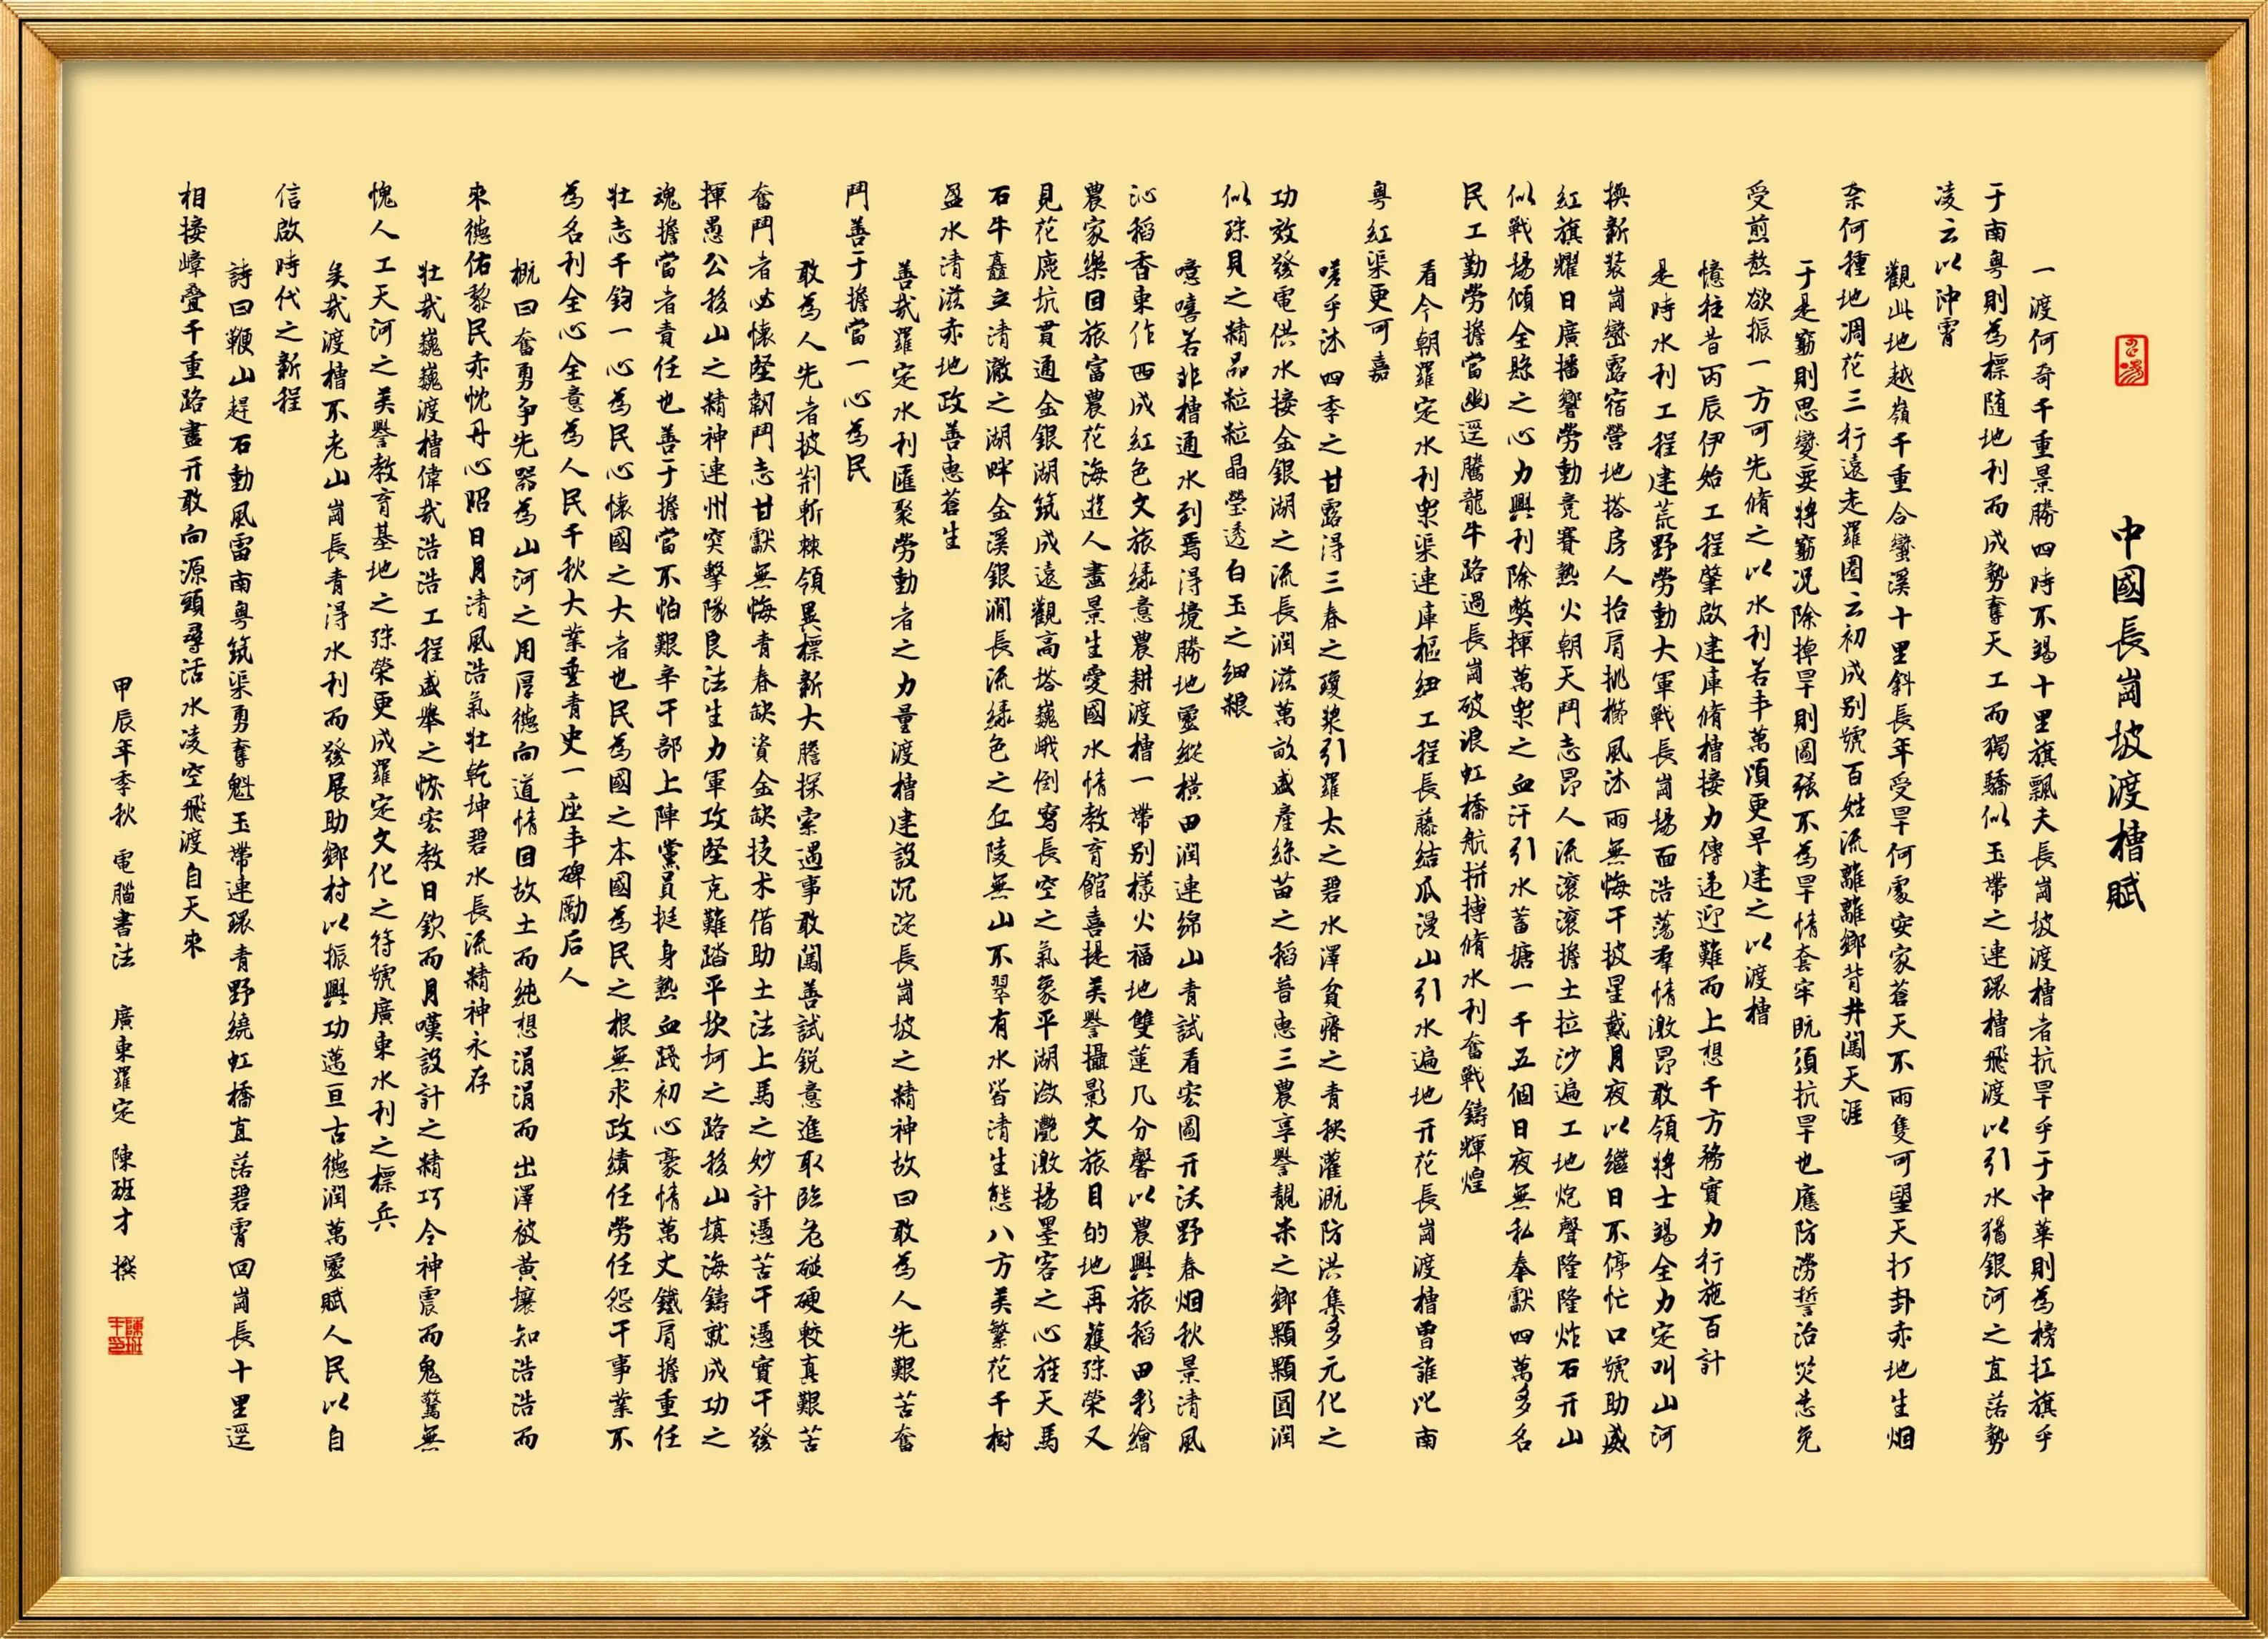 中國長崗坡渡槽賦
一渡何奇千重景勝四時不竭十里旗飄夫長崗坡渡槽者抗旱乎于中華則為榜扛旗乎
于南粵則為標随地利而成勢奪天工而獨驕似玉帶之連環槽飛渡以引水猶銀河之直落勢
凌云以沖霄
觀此地越嶺千重合蠻溪十里斜長年受旱何處安家蒼天不雨隻可望天打卦赤地生烟
奈何種地凋花三行遠走羅圈云初成别號百姓流離離鄉背井闖天涯
于是窮則思變要將窮况除掉旱則圖强不為旱情套牢既須抗旱也應防澇誓治災害免
受煎熬欲振一方可先脩之以水利若丰萬頃更早建之以渡槽
憶往昔丙辰伊始工程肇啟建庫脩槽接力傳递迎難而上想千方務實力行施百計
是時水利工程建荒野勞動大軍戰長崗場面浩蕩羣情激昂敢領將士竭全力定叫山河
換新裝崗巒露宿營地搭房人抬肩挑櫛風沐雨無悔干披星戴月夜以繼日不停忙口號助威
紅旗耀日廣播響勞動竞賽熱火朝天鬥志昂人流滚滚擔土拉沙遍工地炮聲隆隆炸石开山
似戰場傾全縣之心力興利除弊揮萬衆之血汗引水蓄塘一千五個日夜無私奉獻四萬多名
民工勤勞擔當幽逕騰龍牛路過長崗破浪虹橋航拼搏脩水利奮戰鑄輝煌
看今朝羅定水利衆渠連庫樞紐工程長藤结瓜漫山引水遍地开花長崗渡槽曾誰比南
粵紅渠更可嘉
嗟乎沐四季之甘露得三春之瓊漿引羅太之碧水澤貧瘠之青秧灌溉防洪集多元化之
功效發電供水接金銀湖之流長潤滋萬畝盛產絲苗之稻昔惠三農享譽靚米之鄉顆顆圓潤
似珠貝之精品粒粒晶瑩透白玉之细糧
噫嘻若非槽通水到焉得境勝地靈縱横田潤連綿山青試看宏圖开沃野春烟秋景清風
沁稻香東作西成紅色文旅绿意農耕渡槽一帶别樣火福地雙蓮几分馨以農興旅稻田彩繪
農家樂回旅富農花海遊人畫景生愛國水情教育館喜提美譽攝影文旅目的地再獲殊榮又
見花鹿坑貫通金銀湖筑成遠觀高塔巍峨倒寫長空之氣象平湖潋灧激揚墨客之心旌天馬
石牛矗立清澈之湖畔金溪銀澗長流绿色之丘陵無山不翠有水皆清生態八方美繁花千樹
盈水清滋赤地政善惠蒼生
善哉羅定水利匯聚勞動者之力量渡槽建設沉淀長崗坡之精神故曰敢為人先艱苦奮
鬥善于擔當一心為民
敢為人先者披荆斬棘領異標新大膽探索遇事敢闖善試鋭意進取臨危碰硬較真艱苦
奮鬥者必懷堅韌鬥志甘獻無悔青春缺資金缺技术借助土法上馬之妙計憑苦干憑實干發
揮愚公移山之精神連州突擊隊良法生力軍攻堅克難踏平坎坷之路移山填海鑄就成功之
魂擔當者責任也善于擔當不怕艱辛干部上陣黨員挺身熱血踐初心豪情萬丈鐵肩擔重任
壮志千鈞一心為民心懷國之大者也民為國之本國為民之根無求政績任勞任怨干事業不
為名利全心全意為人民千秋大業垂青史一座丰碑勵后人
概曰奮勇争先器為山河之用厚德向道情回故土而純想涓涓而出澤被黃壤知浩浩而
來德佑黎民赤忱丹心昭日月清風浩氣壮乾坤碧水長流精神永存
壮哉巍巍渡槽偉哉浩浩工程盛舉之恢宏教日欽而月嘆設計之精巧令神震而鬼驚無
愧人工天河之美譽教育基地之殊榮更成羅定文化之符號廣東水利之標兵
矣哉渡槽不老山崗長青得水利而發展助鄉村以振興功邁亘古德潤萬靈賦人民以自
信啟時代之新程
詩曰鞭山趕石動風雷南粵筑渠勇奪魁玉帶連環青野繞虹橋直落碧霄回崗長十里逕
相接嶂叠千重路盡开敢向源頭尋活水凌空飛渡自天來
甲辰年季秋 電腦書法 廣東羅定 陳班才 撰